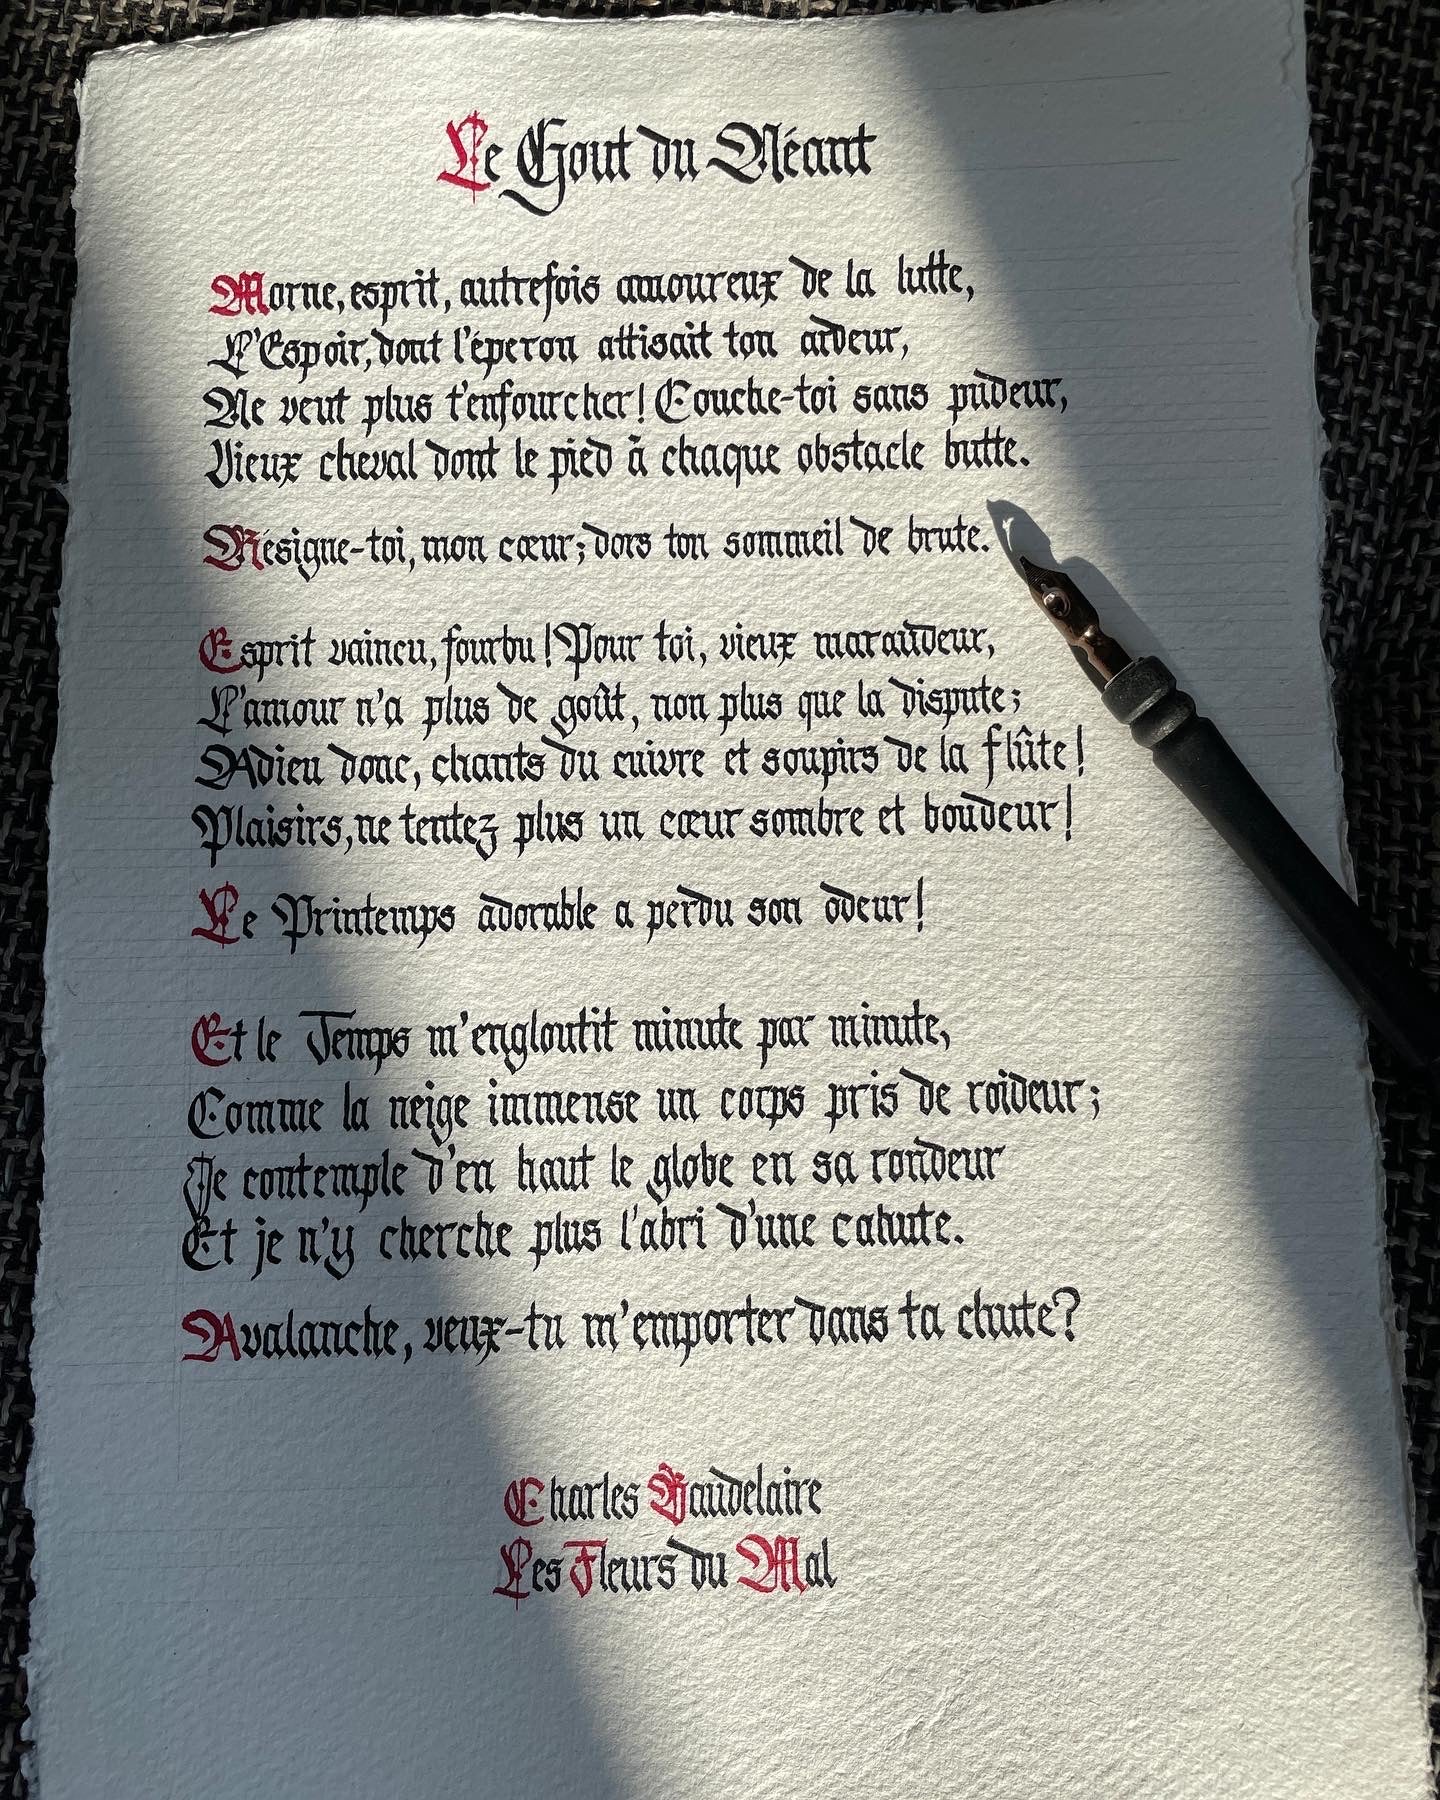 Le Gout du Néant
Morne, esprit, autrefois amoureux de la lutte,
L'Espoir, dont l'éperon attisait ton ardeur,
Ne veut plus t'enfourcher! Couche-toi sans pudeur,
Vieux cheval dont le pied à chaque obstacle butte.
Résigne-toi, mon cœur; dors ton sommeil de brute.
Esprit vaincu, fourbu! Pour toi, vieux maraudeur,
L'amour n'a plus de goût, non plus que la dispute;
Adieu donc, chants du cuivre et soupirs de la flûte!
Plaisirs, ne tentez plus un cœur sombre et boudeur!
Le Printemps adorable a perdu son odeur!
Et le Temps m'engloutit minute par minute,
Comme la neige immense un corps pris de roideur;
Je contemple d'en haut le globe en sa rondeur
Et je n'y cherche plus l'abri d'une cahute.
Avalanche, veux-tu m'emporter dans ta chute?
Charles Baudelaire
Les Fleurs du Mal